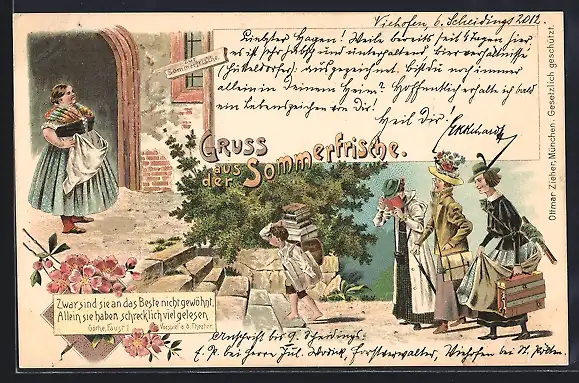 Viehofen, 6. Scheidings 2012.
Liebster Hagen! Weile bereits seit 4 Tagen hier
es ist sehr hübsch und unterhaltend. Bierverhältnisse
(Hütteldorfer): Ausgezeichnet. Bist du noch immer
allein in Deinem Heim? Hoffentlich erhalte ich bald
ein Lebenszeichen von Dir.
Heil Dir
Ekkehardt
Sommerfrische.
Gruss
aus
der Sommerfrische.
Ottmar Zieher, München. Gesetzlich geschützt.
Zwar sind sie an das Beste nicht gewöhnt,
Allein sie haben schrecklich viel gelesen.
Göthe, Faust I. Vorspiel a. d. Theater.
Anschrift bis 9. Scheidings:
E. P. bei Herrn Jul. Forstverwalter, Viehofen bei St. Pölten.